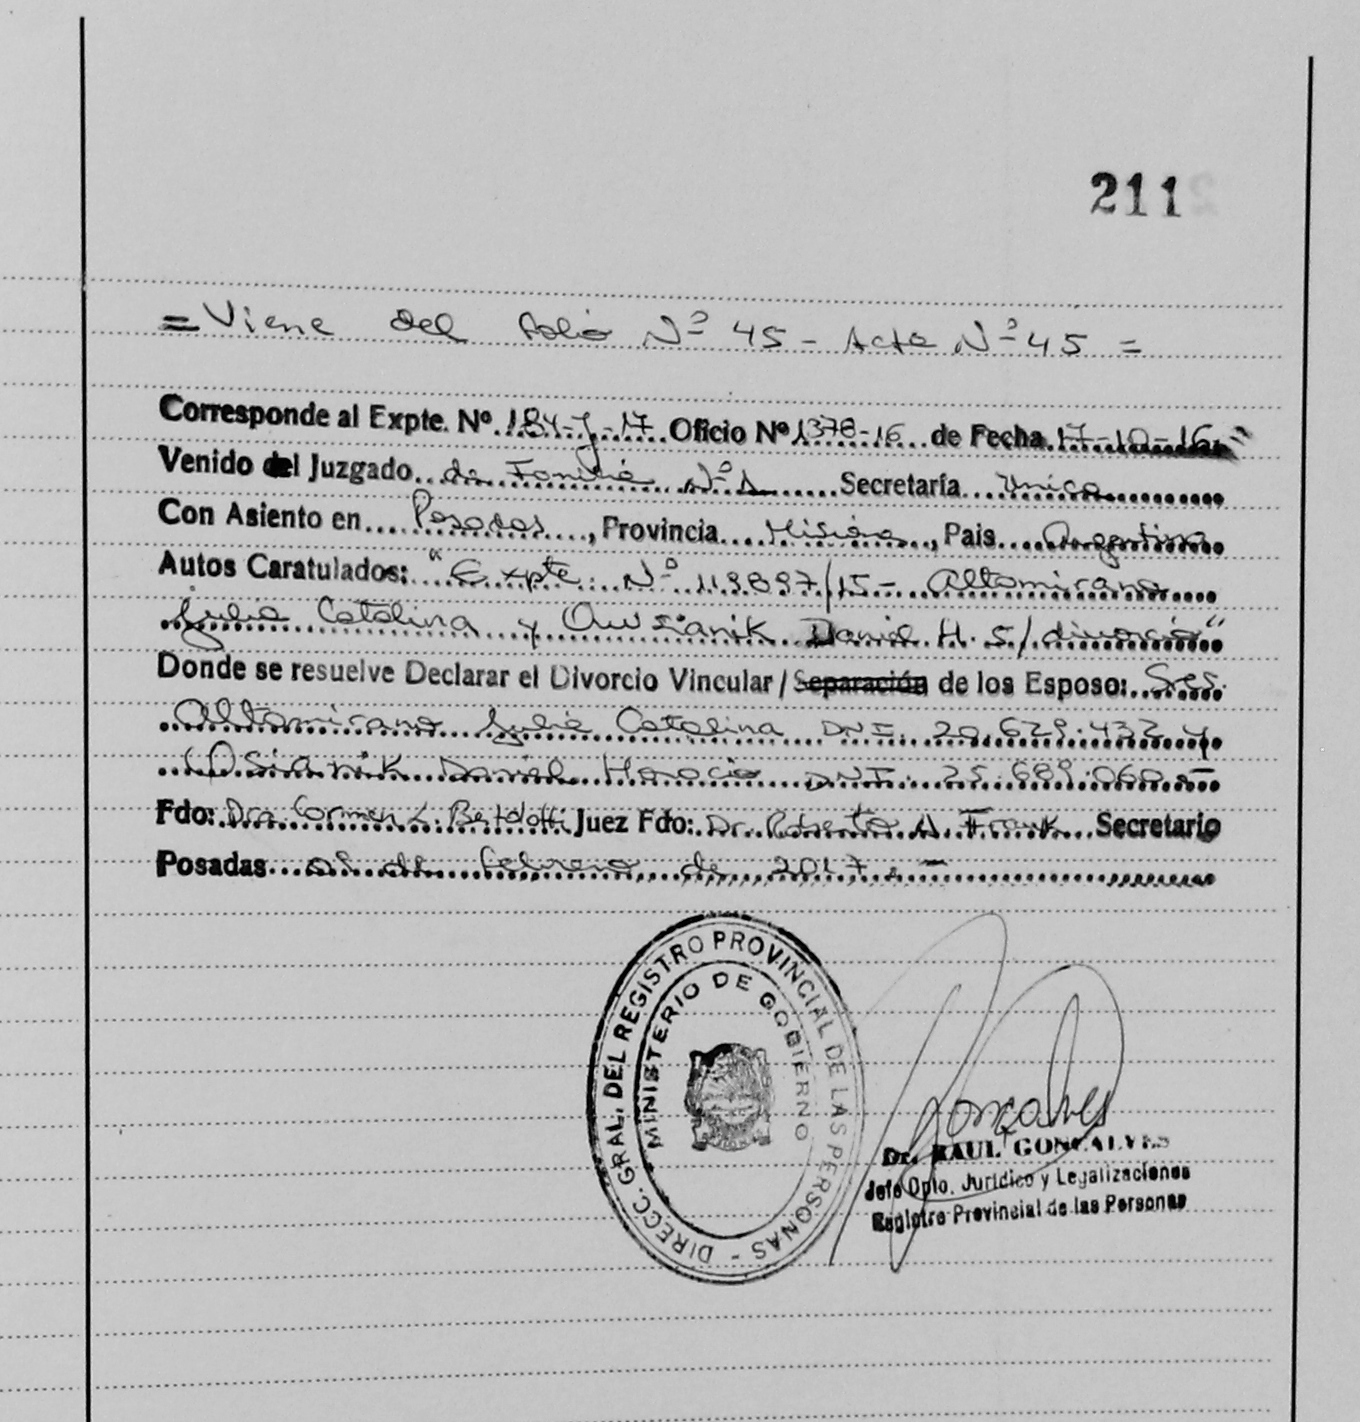 211
= Viene del folio Nº 45 - Acta Nº 45 =
Corresponde al Expte. Nº 184-J-17 Oficio Nº 1378-16 de Fecha 17-10-16
Venido del Juzgado de Familia Nº 1 Secretaría Unica
Con Asiento en Posadas, Provincia Misiones, Pais Argentina
Autos Caratulados: "Expte. Nº 119897/15- Altamirano
Julia Catalina y Owsianik Daniel H. S/ divorcio"
Donde se resuelve Declarar el Divorcio Vincular / Separación de los Esposo: Sres.
Altamirano Julia Catalina DNI. 20.629.432 y
Osianik Daniel Horacio DNI. 25.689.060.-
Fdo: Dra. Carmen L. Bertolotti Juez Fdo: Dr. Roberto A. Frank Secretario
Posadas de febrero de 2017.-
DIRECC. GRAL. DEL REGISTRO PROVINCIAL DE LAS PERSONAS -
MINISTERIO DE GOBIERNO
Gonçalves
Dr. RAUL GONCALVES
Jefe Dpto. Jurídico y Legalizaciones
Registro Provincial de las Personas